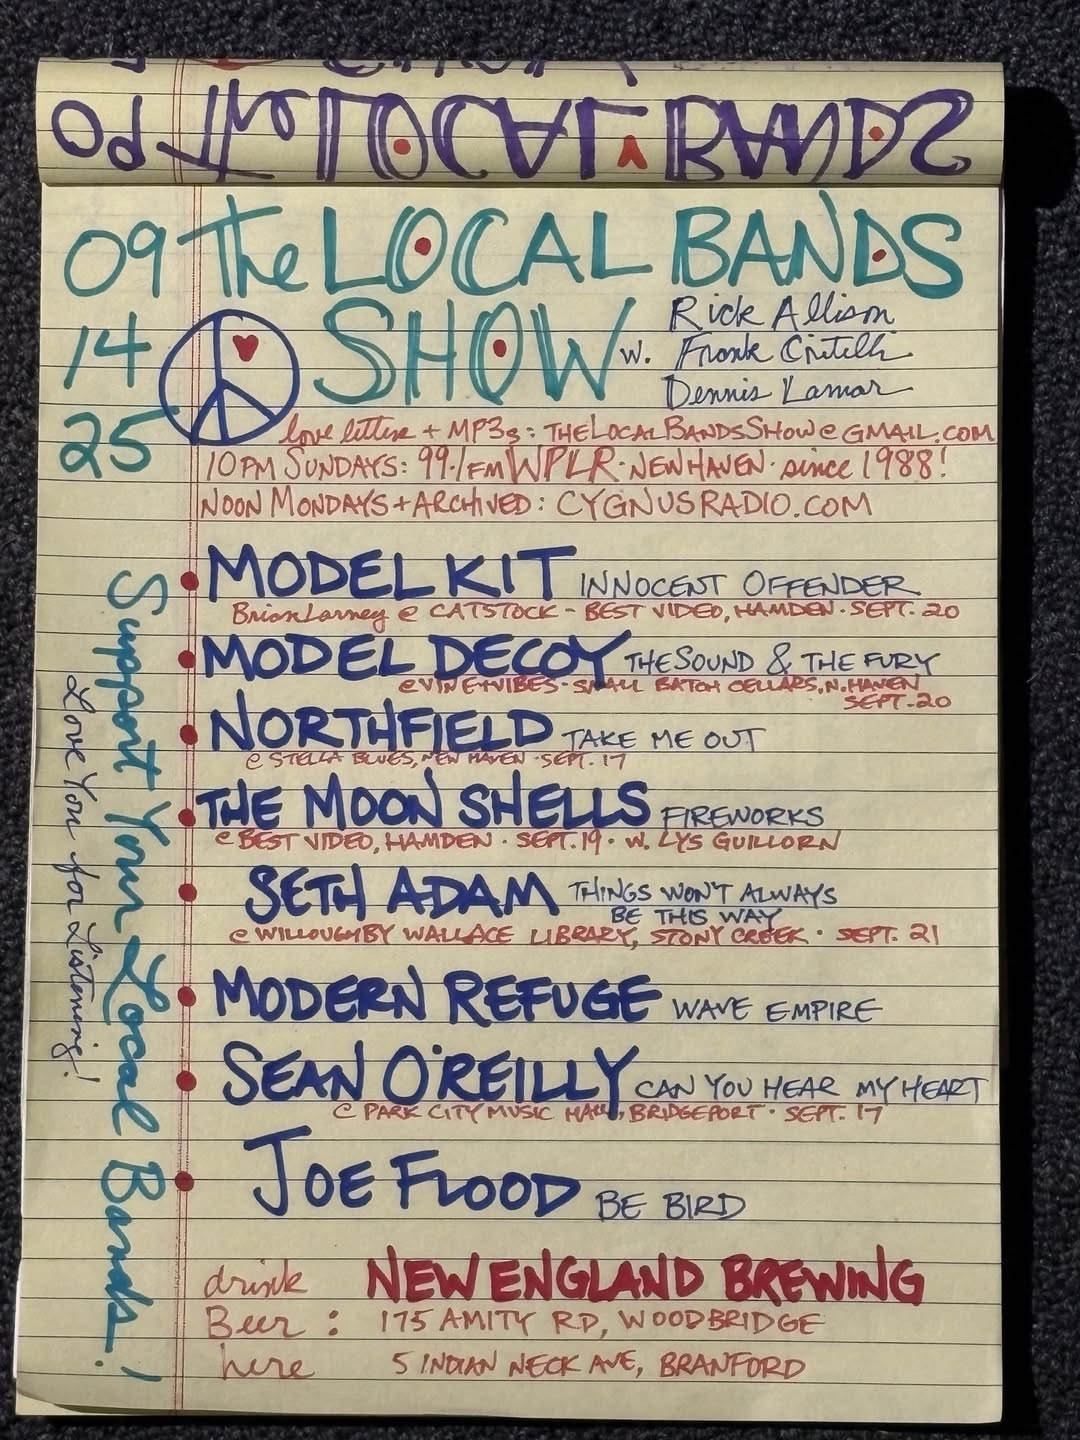 The LOCAL BANDS
09 The LOCAL BANDS
14 SHOW w. Rick Allison
Frank Critelli
Dennis Lamar
25
love letters + MP3s: THELOCALBANDSSHOW@GMAIL.COM
10PM SUNDAYS: 99.1FM WPLR · NEW HAVEN · since 1988!
NOON MONDAYS + ARCHIVED: CYGNUSRADIO.COM
MODEL KIT INNOCENT OFFENDER
Brian Larney @ CATSTOCK - BEST VIDEO, HAMDEN · SEPT. 20
MODEL DECOY THE SOUND & THE FURY
@ VINE+VIBES · SMALL BATCH CELLARS, N. HAVEN
SEPT. 20
NORTHFIELD TAKE ME OUT
@ STELLA BLUES, NEW HAVEN · SEPT. 17
THE MOON SHELLS FIREWORKS
@ BEST VIDEO, HAMDEN · SEPT. 19 · W. LYS GUILLORN
SETH ADAM THINGS WON'T ALWAYS
BE THIS WAY
@ WILLOUGHBY WALLACE LIBRARY, STONY CREEK · SEPT. 21
MODERN REFUGE WAVE EMPIRE
SEAN O'REILLY CAN YOU HEAR MY HEART
@ PARK CITY MUSIC HALL, BRIDGEPORT · SEPT. 17
JOE FLOOD BE BIRD
drink NEW ENGLAND BREWING
Beer : 175 AMITY RD, WOODBRIDGE
here 5 INDIAN NECK AVE, BRANFORD
Support Your Local Bands!
Love You for Listening!